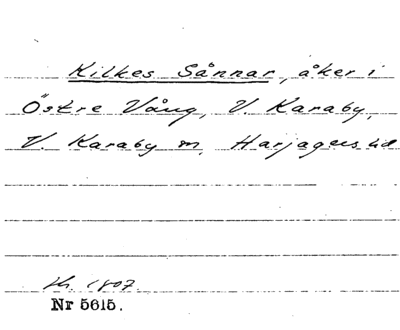 Kilkes Sånnar, åker i
Östre Vång, V. Karaby,
V. Karaby sn, Harjagers hd
1807
Nr 5615.